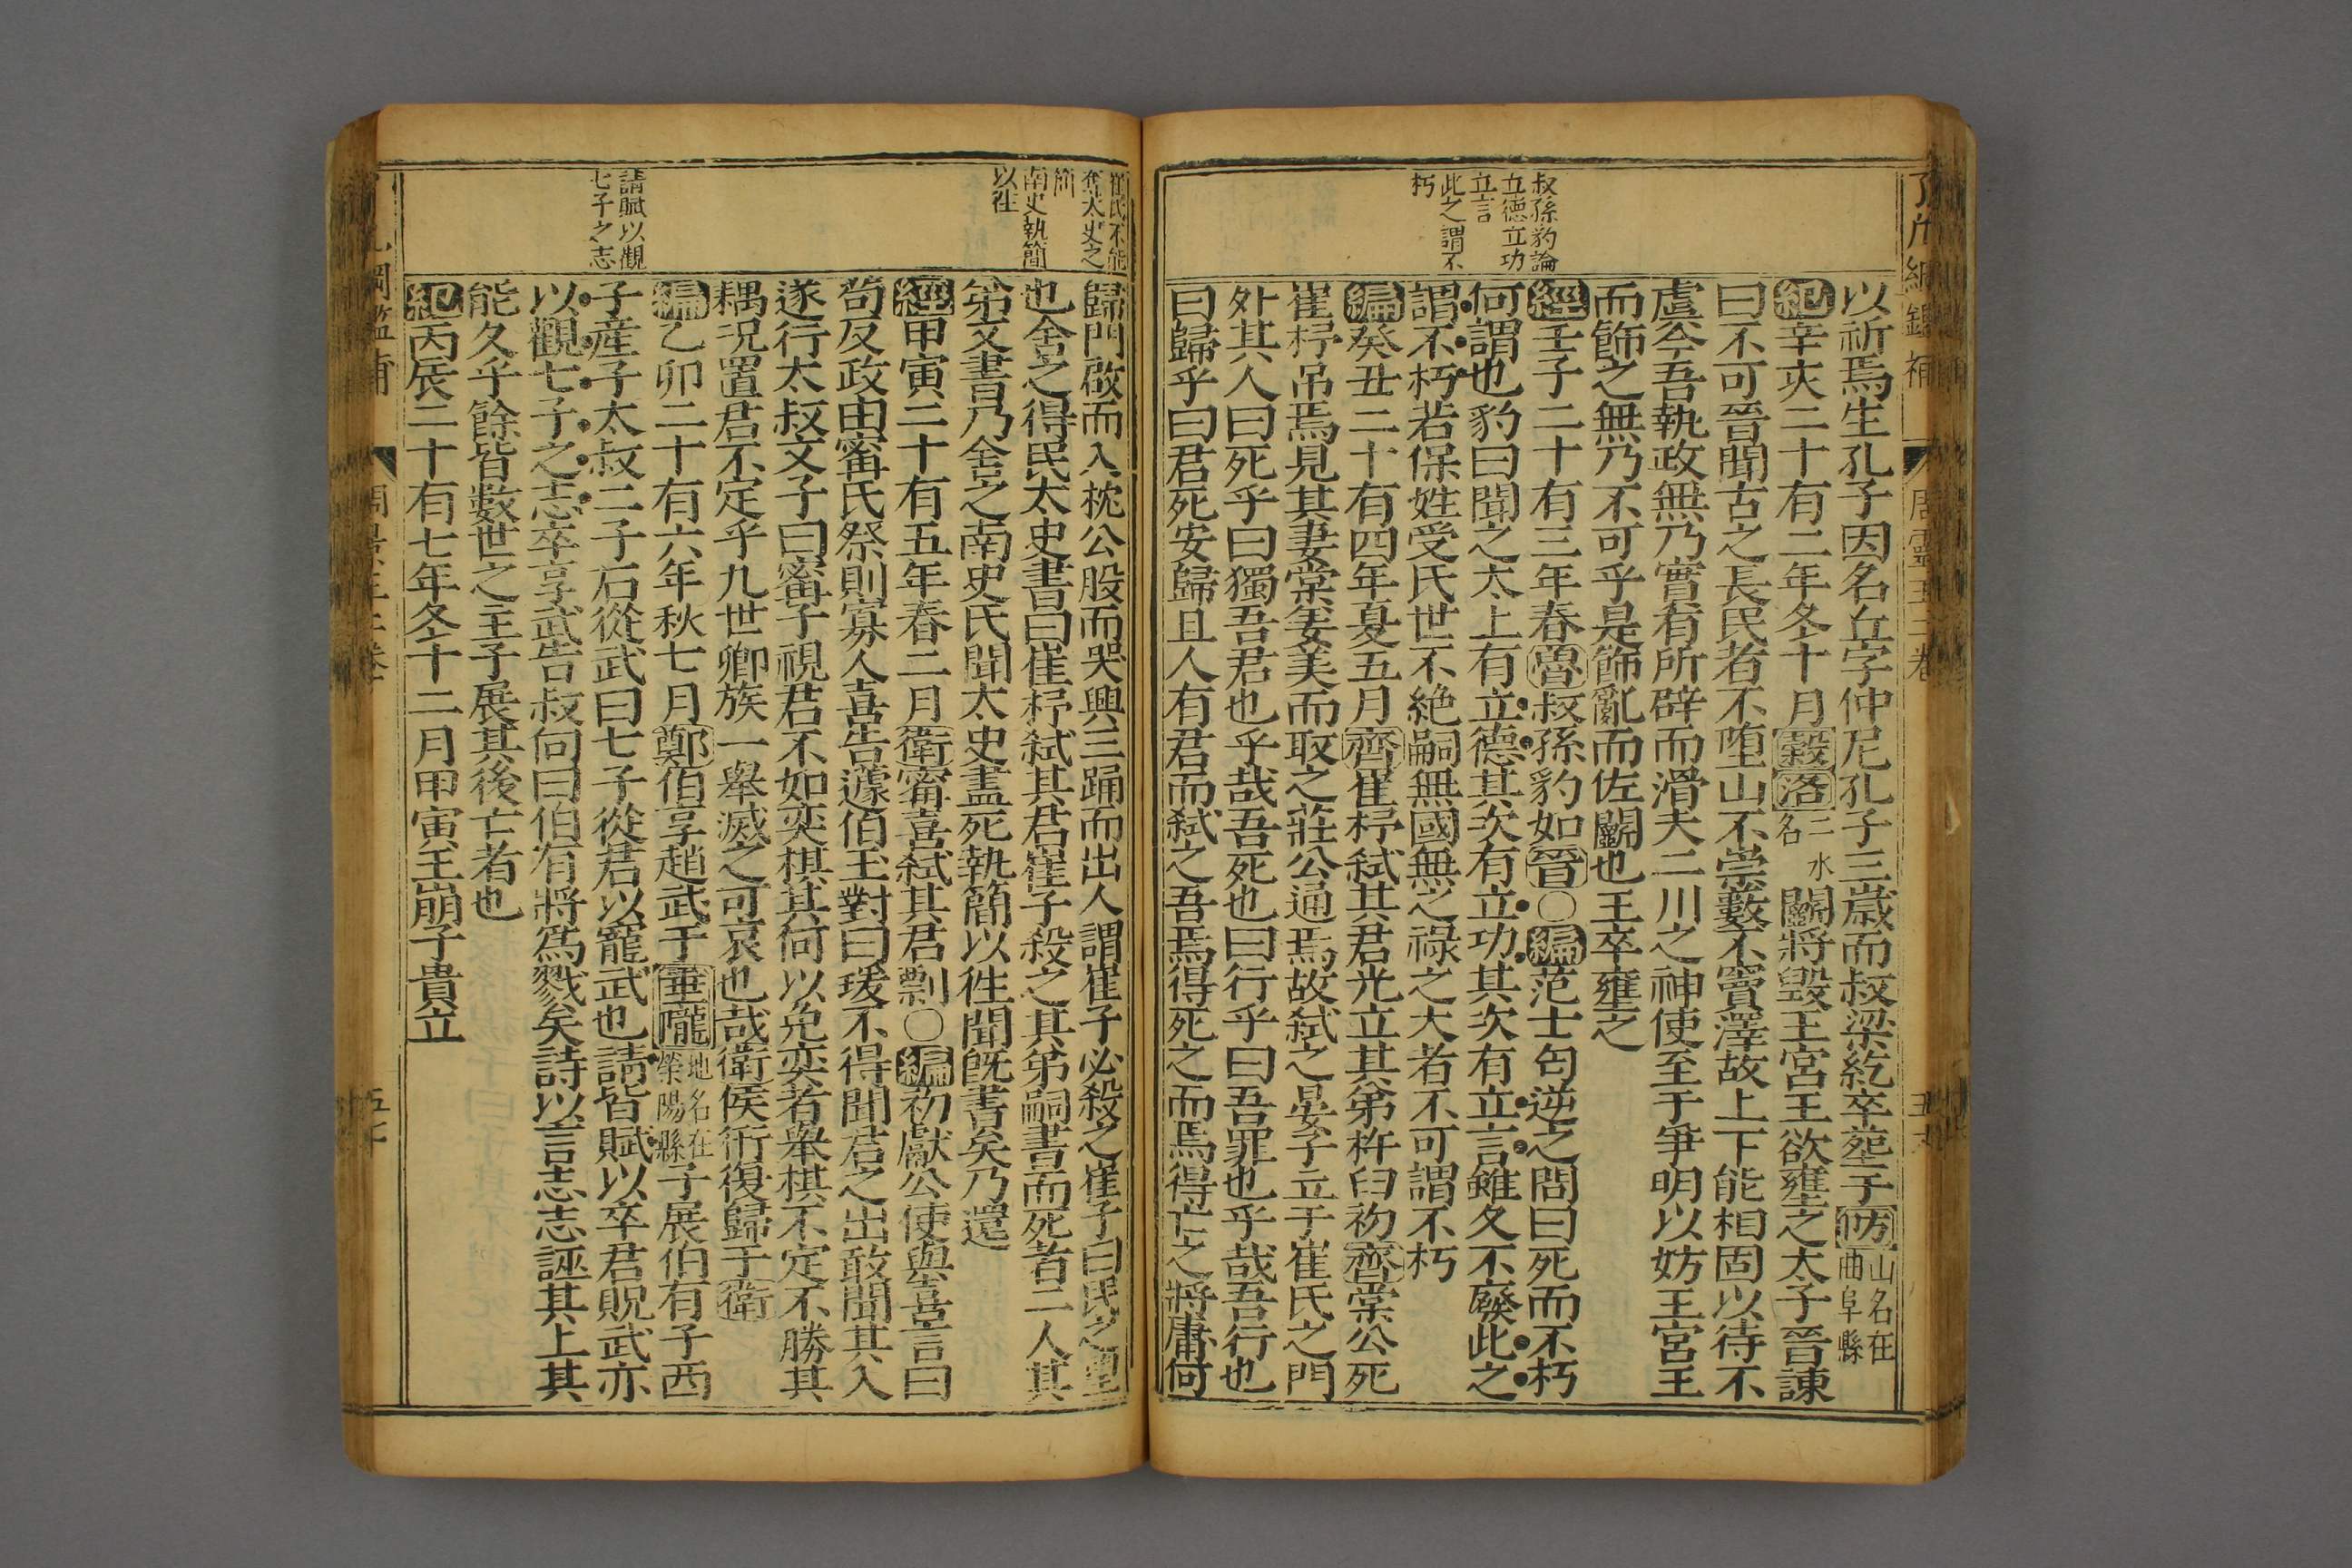 叔孫豹論
立德立功
立言
此之謂不
朽
以祈焉生孔子因名丘字仲尼孔子三歲而叔梁紇卒塟子防山名在曲阜縣
紀辛亥二十有二年冬十月穀洛二水名鬭將毀王宮王欲壅之太子晉諫
曰不可晉聞古之長民者不墮山不崇藪不竇澤故上下能相固以待不
虞今吾執政無乃實有所辟而滑夫二川之神使至于爭明以妨王宮王
而飾之無乃不可乎是飾亂而佐鬭也王卒壅之
經壬子二十有三年春魯叔孫豹如晉○編范士匄逆之問曰死而不朽
何謂也豹曰聞之太上有立德其次有立功其次有立言雖久不廢此之
謂不朽若保姓受氏世不絶嗣無國無之祿之大者不可謂不朽
編癸丑二十有四年夏五月齊崔杼弑其君光立其弟杵臼初齊棠公死
崔杼吊焉見其妻棠姜美而取之莊公通焉故弑之晏子立于崔氏之門
外其人曰死乎曰獨吾君也乎哉吾死也曰行乎曰吾罪也乎哉吾行也
曰歸乎曰君死安歸且人有君而弑之吾焉得死之而焉得亡之將庸何
崔氏不能
奪太史之
簡
南史執簡
以徃
請賦以觀
七子之志
歸門啟而入枕公股而哭興三踊而出人謂崔子必殺之崔子曰民之望
也舍之得民太史書曰崔杼弑其君崔子殺之其弟嗣書而死者二人其
弟又書乃舍之南史氏聞太史盡死執簡以徃聞旣書矣乃還
經甲寅二十有五年春二月衛甯喜弑其君剽○編初獻公使與喜言曰
苟反政由甯氏祭則寡人喜告蘧伯玉對曰瑗不得聞君之出敢聞其入
遂行太叔文子曰甯子視君不如奕棋其何以免奕者舉棋不定不勝其
耦況置君不定乎九世卿族一舉滅之可哀也哉衛侯衎復歸于衛
編乙卯二十有六年秋七月鄭伯享趙武于垂隴地名在滎陽縣子展伯有子西
子産子太叔二子石從武曰七子從君以寵武也請皆賦以卒君貺武亦
以觀七子之志卒享武告叔向曰伯有將爲戮矣詩以言志志誣其上其
能久乎餘皆數世之主子展其後亡者也
紀丙辰二十有七年冬十二月甲寅王崩子貴立